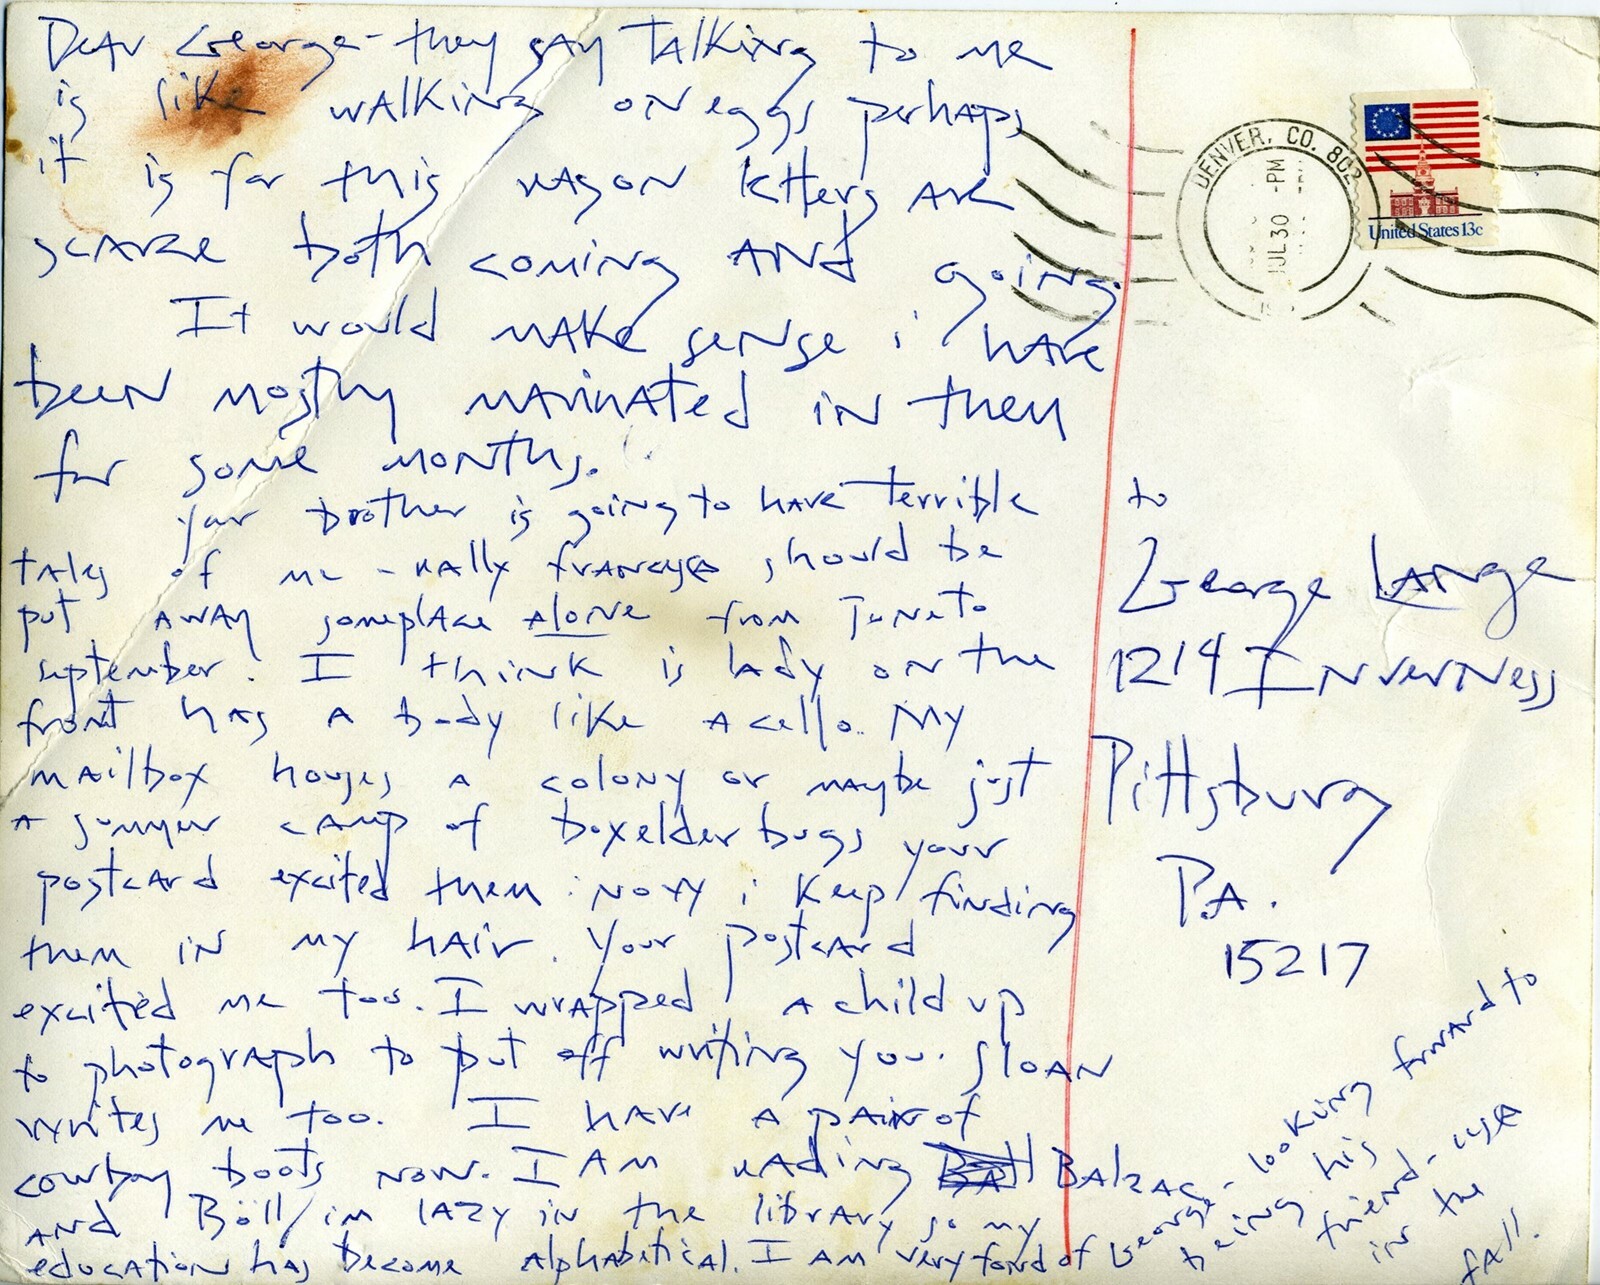 Dear George - they say talking to me
is like walking on eggs perhaps
it is for this reason letters are
scarce both coming and going.
It would make sense i have
been mostly marinated in them
for some months.
your brother is going to have terrible
tales of me - really francesca should be
put away someplace alone from June to
september. I think is lady on the
front has a body like a cello. My
mailbox houses a colony or maybe just
a summer camp of boxelder bugs your
postcard excited them now i keep finding
them in my hair. Your postcard
excited me too. I wrapped a child up
to photograph to put off writing you. Sloan
writes me too. I have a pair of
cowboy boots now. I am reading Balzac
and Böll/im lazy in the library so my
education has become alphabetical. I am very fond of George - looking forward to
being his
friend -
in the
fall.
DENVER, CO. 802
PM
JUL 30
United States 13c
to
George Lange
1214 Inverness
Pittsburg
P.A.
15217